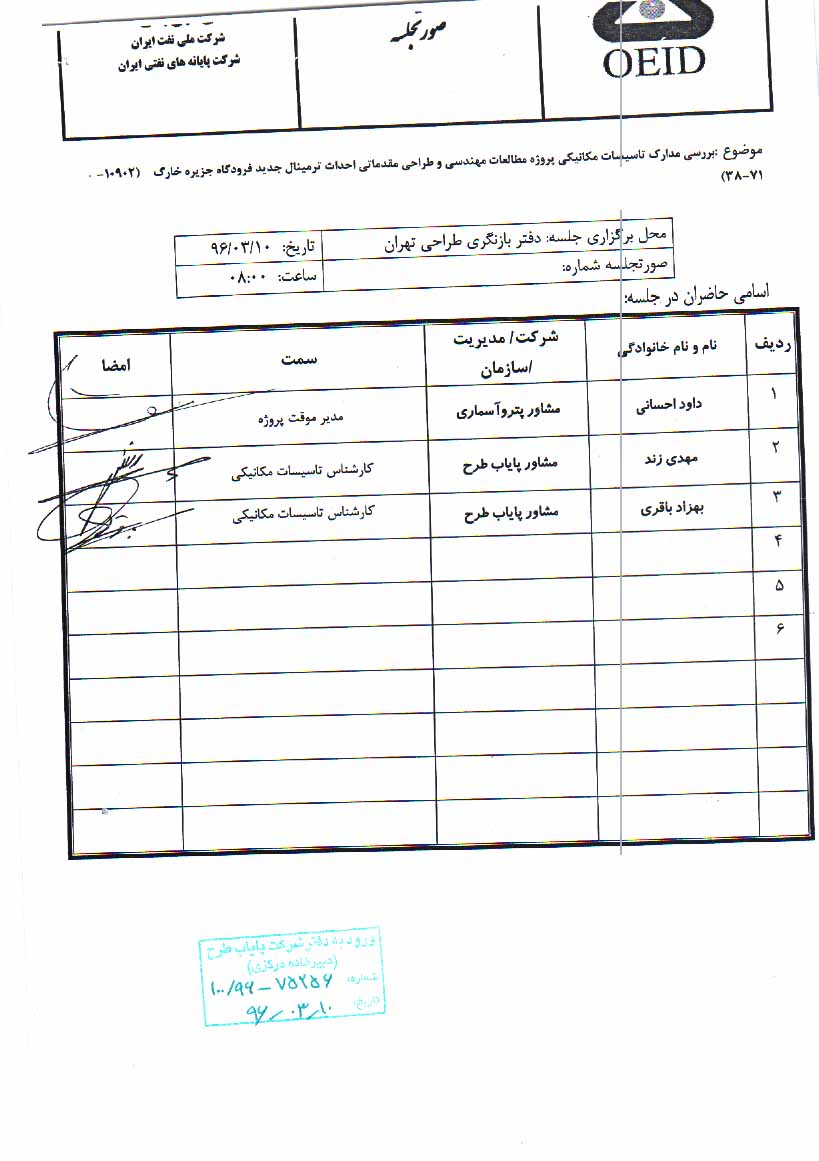 OEID
صورتجلسه
شرکت ملی نفت ایران
شرکت پایانه های نفتی ایران
موضوع :بررسی مدارک تاسیسات مکانیکی پروژه مطالعات مهندسی و طراحی مقدماتی احداث ترمینال جدید فرودگاه جزیره خارگ (۱۰۹۰۲-۰
۷۱-۳۸)
محل برگزاری جلسه: دفتر بازنگری طراحی تهران تاریخ: ۹۶/۰۳/۱۰
صورتجلسه شماره: ساعت: ۰۸:۰۰
اسامی حاضران در جلسه:
ردیف نام و نام خانوادگی شرکت/ مدیریت /سازمان سمت امضا
۱ داود احسانی مشاور پتروآسماری مدیر موقت پروژه
۲ مهدی زند مشاور پایاب طرح کارشناس تاسیسات مکانیکی
۳ بهزاد باقری مشاور پایاب طرح کارشناس تاسیسات مکانیکی
۴
۵
۶
ورود به دفتر شرکت پایاب طرح
(دبیرخانه مرکزی)
شماره: ۱۰۰/۹۶ – ۷۵۲۵۶
تاریخ: ۹۶/۰۳/۱۰